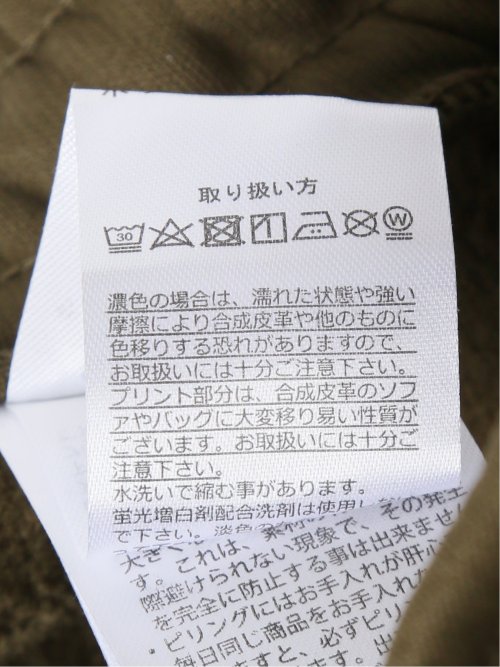 取り扱い方
30 W
濃色の場合は、濡れた状態や強い
摩擦により合成皮革や他のものに
色移りする恐れがありますので、
お取扱いには十分ご注意下さい。
プリント部分は、合成皮革のソフ
ァやバッグに大変移り易い性質が
ございます。お取扱いには十分ご
注意下さい。
水洗いで縮む事があります。
蛍光増白剤配合洗剤は使用し
で下さい。淡色
大き
す。これは、素材 その発生
際避けられない現象で、
を完全に防止する事は出来ません
・ピリングにはお手入れが肝心
毎日同じ商品をお手入れ
ますと、必ずピリ
す。出